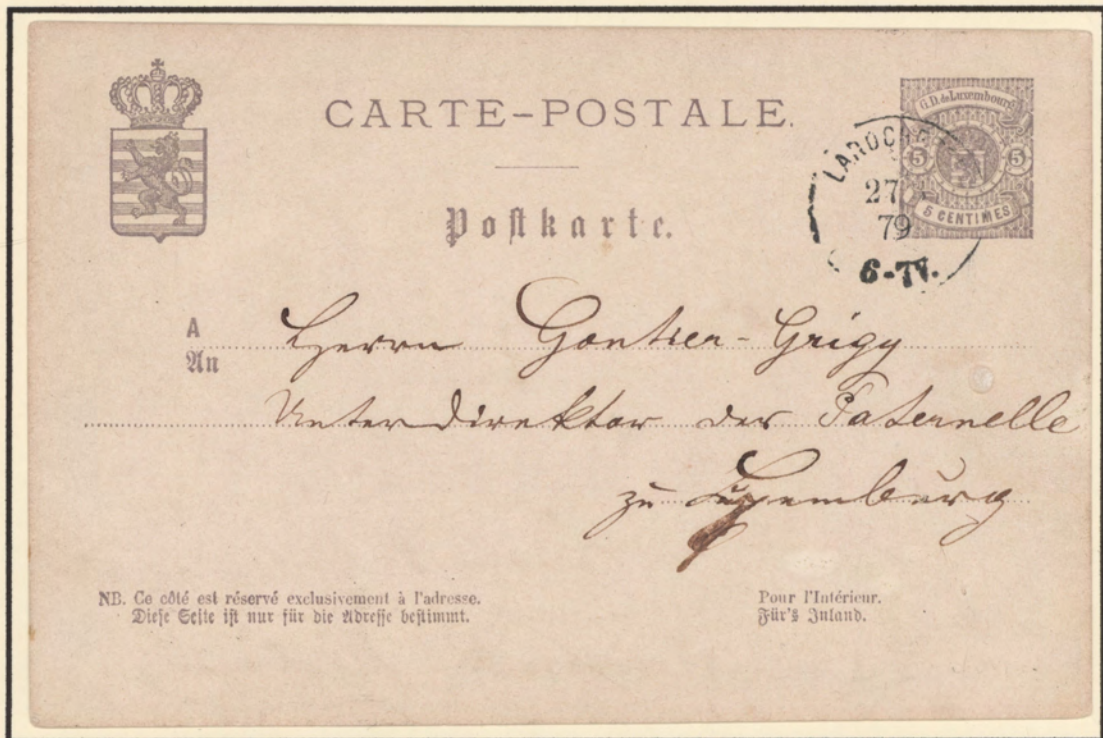 CARTE-POSTALE.
G.D. de Luxembourg
5 5
5 CENTIMES
LAROCHE
27
79
6-7V.
Postkarte.
A
An
Herrn Gontier-Grigy
Unterdirektor der Paternelle
zu Luxemburg
NB. Ce côté est réservé exclusivement à l'adresse.
Diese Seite ist nur für die Adresse bestimmt.
Pour l'Intérieur.
Für's Inland.